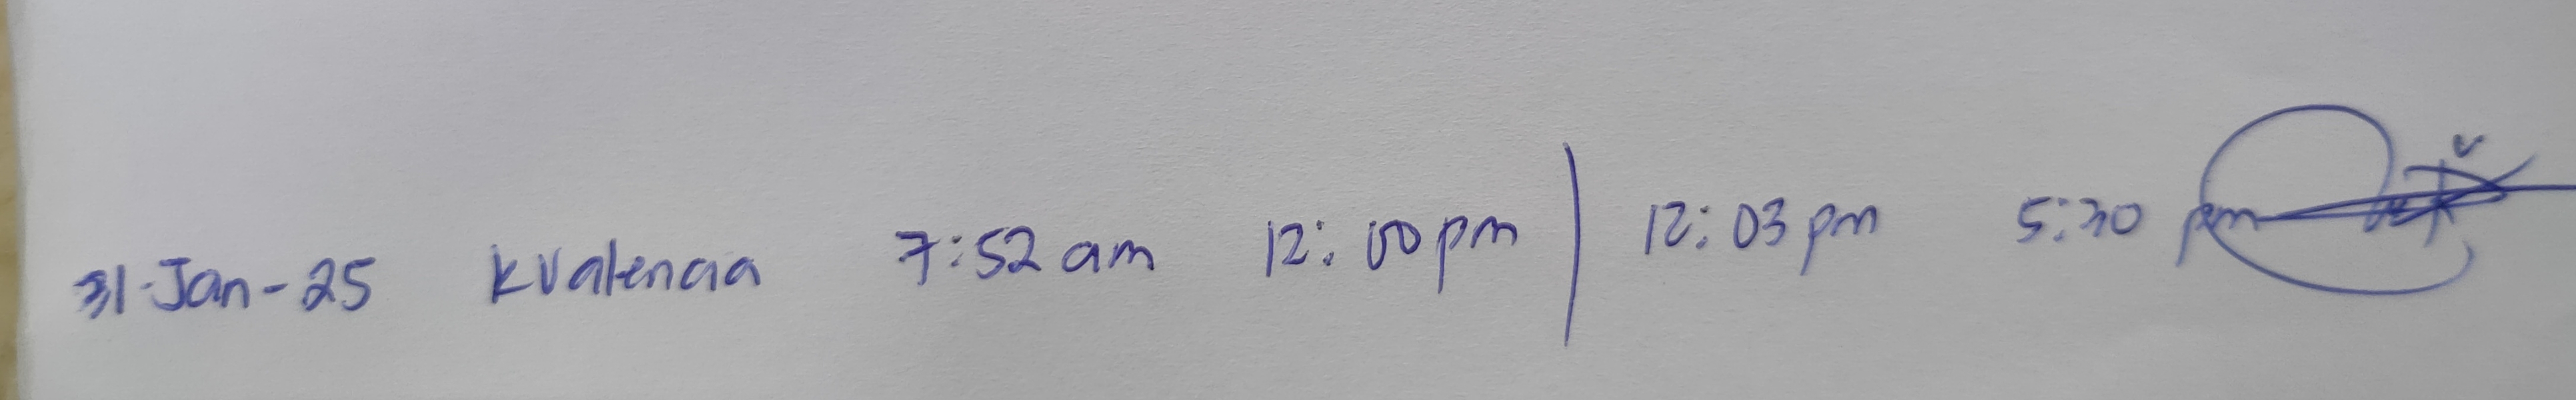 31-Jan-25 KValencia 7:52 am 12:00 pm | 12:03 pm 5:30 pm